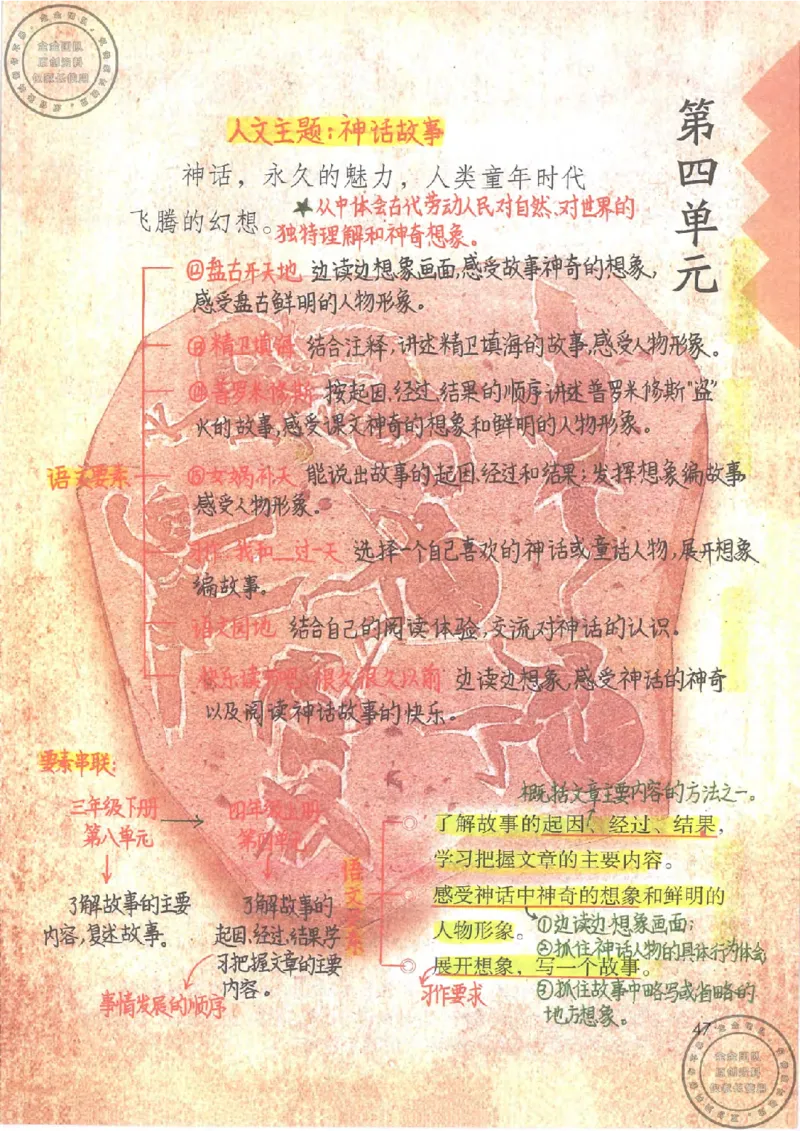 第四单元
人文主题：神话故事
神话，永久的魅力，人类童年时代
飞腾的幻想。
★从中体会古代劳动人民对自然、对世界的
独特理解和神奇想象。
语文要素
⑫盘古开天地 边读边想象画面,感受故事神奇的想象,
感受盘古鲜明的人物形象。
⑬精卫填海 结合注释,讲述精卫填海的故事,感受人物形象。
⑭普罗米修斯 按起因、经过、结果的顺序讲述普罗米修斯“盗”
火的故事,感受课文神奇的想象和鲜明的人物形象。
⑮女娲补天 能说出故事的起因、经过和结果;发挥想象编故事,
感受人物形象。
习作:我和__过一天 选择一个自己喜欢的神话或童话人物,展开想象
编故事。
语文园地 结合自己的阅读体验,交流对神话的认识。
快乐读书吧:很久很久以前 边读边想象,感受神话的神奇
以及阅读神话故事的快乐。
要素串联:
三年级下册
第八单元
了解故事的主要
内容,复述故事。
四年级上册
第四单元
了解故事的
起因、经过、结果,学
习把握文章的主要
内容。
事情发展的顺序
语文要素
概括文章主要内容的方法之一。
了解故事的起因、经过、结果，
学习把握文章的主要内容。
感受神话中神奇的想象和鲜明的
人物形象。
①边读边想象画面;
②抓住神话人物的具体行为体会
展开想象，写一个故事。
习作要求
③抓住故事中略写或省略的
地方想象。
47